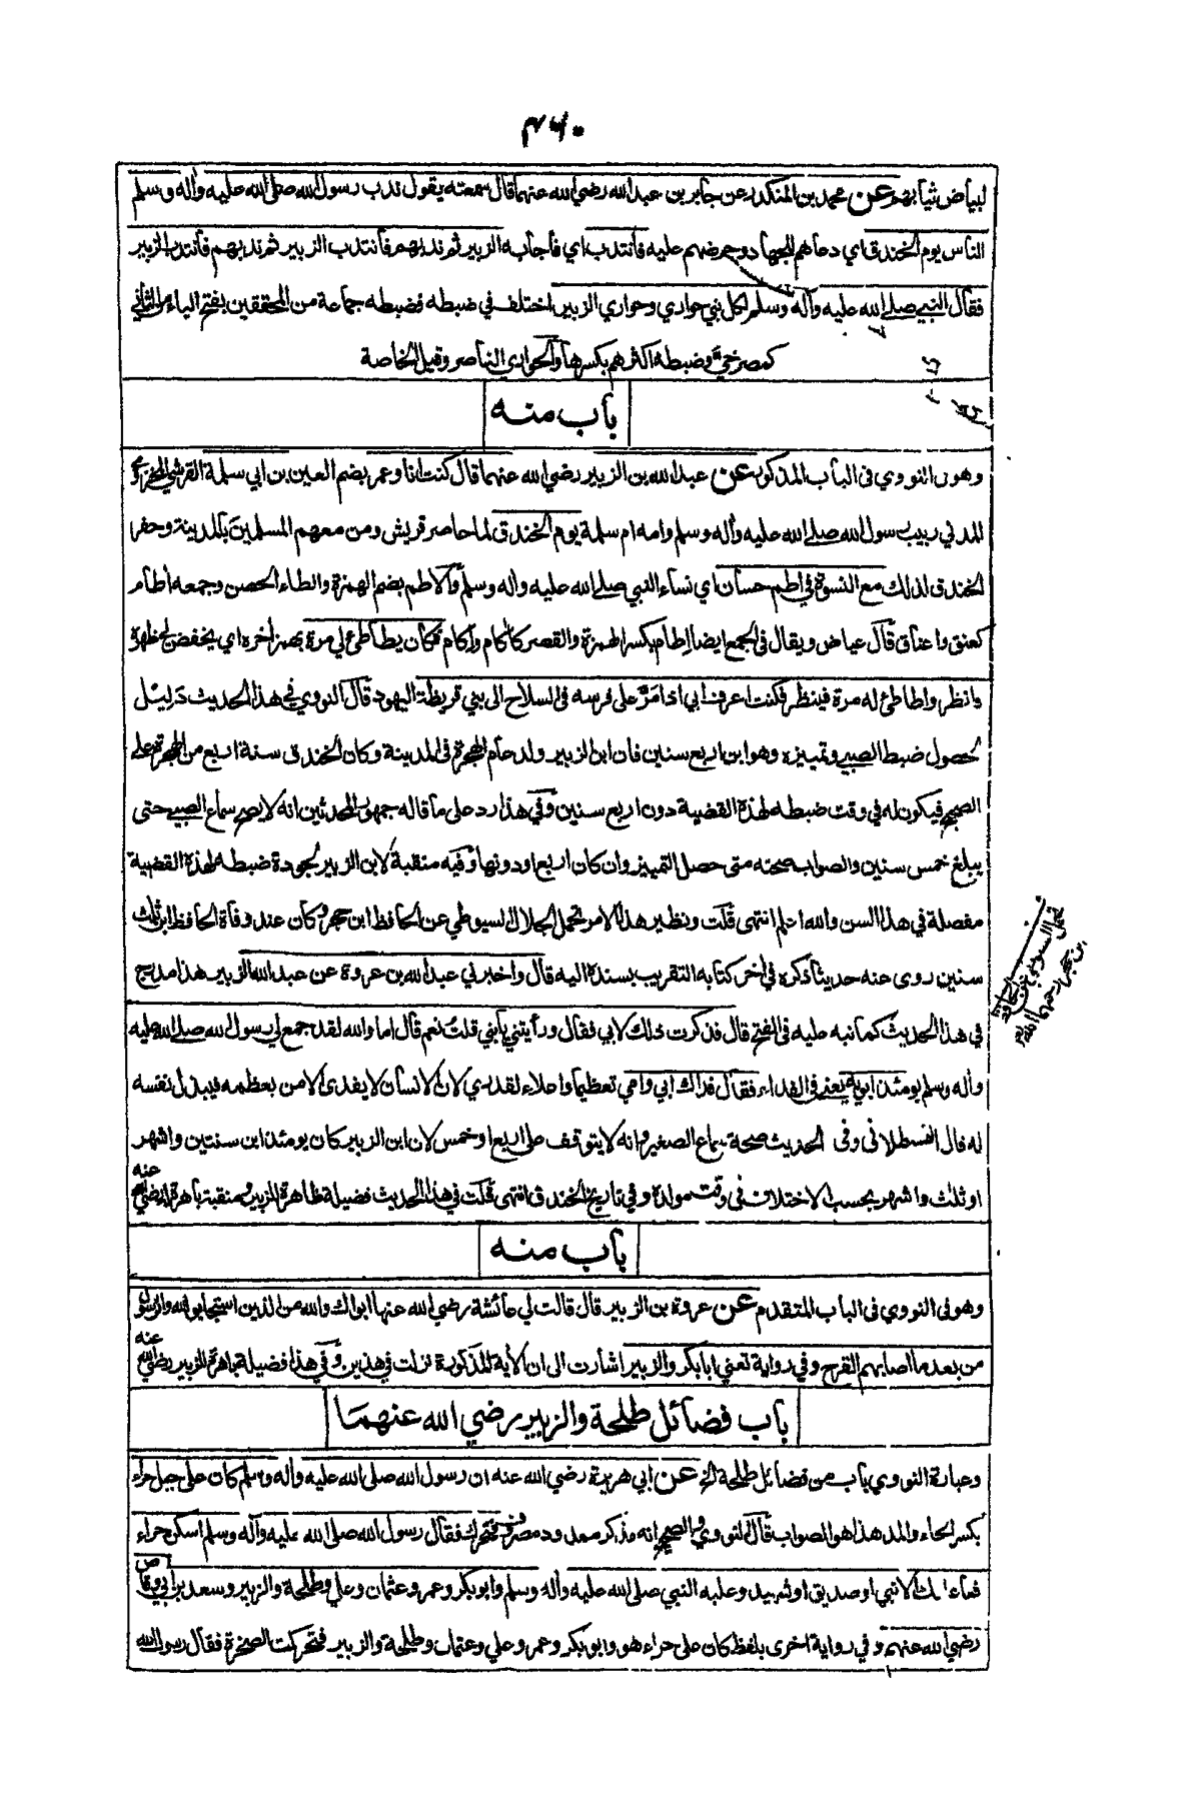 ٤٦٠
لبياض ثيابهم عن محمد بن المنكدر عن جابر بن عبد الله رضي الله عنهما قال سمعته يقول ندب رسول الله صلى الله عليه وآله وسلم
الناس يوم الخندق اي دعاهم للجهاد وحرضهم عليه فانتدب اي فأجابه الزبير ثم ندبهم فانتدب الزبير ثم ندبهم فانتدب الزبير
فقال النبي صلى الله عليه وآله وسلم لكل نبي حواري وحواري الزبير اختلف في ضبطه فضبطه جماعة من المحققين بفتح الياء من الثاني
كمصرخي وضبطه اكثرهم بكسرها والحواري الناصر وقيل الخاصة
باب منه
وهو في النووي في الباب المذكور عن عبد الله بن الزبير رضي الله عنهما قال كنت انا وعمر بضم العين بن ابي سلمة القرشي المخزومي
المدني ربيب رسول الله صلى الله عليه وأله وسلم وامه ام سلمة يوم الخندق لما حاصر قريش ومن معهم المسلمين بالمدينة وحفر
الخندق لذلك مع النسوة في اطم حسان اي نساء النبي صلى الله عليه وأله وسلم والاطم بضم الهمزة والطاء الحصن وجمعه اطام
كعنق واعناق قال عياض ويقال في الجمع ايضا إطام بكسر الهمزة والقصر كآكام وإكام فكان يطأطئ لي مرة بهمز اخره اي يخفض لي ظهره
فانظر واطأطئ له مرة فينظر فكنت اعرف ابي اذا مَرَّ على فرسه في السلاح الى بني قريظة اليهود قال النووي في هذا الحديث دَليل
لحصول ضبط الصبي وتمييزه وهو ابن اربع سنين فان ابن الزبير ولد عام الهجرة في المدينة وكان الخندق سنة اربع من الهجرة على
الصحيح فيكون له في وقت ضبطه لهذه القضية دون اربع سنين وفي هذا رد على ما قاله جمهور المحدثين انه لا يصح سماع الصبي حتى
يبلغ خمس سنين والصواب صحته متى حصل التمييز وان كان اربع او دونها وفيه منقبة لابن الزبير لجودة ضبطه لهذه القضية
مفصلة في هذا السن والله اعلم انتهى قلت ونظير هذا الامر تحمل الجلال السيوطي عن الحافظ ابن حجر وكان عند وفاة الحافظ ابن ثلث
سنين روى عنه حديثا ذكره في اخر كتابه التقريب بسنده اليه قال واخبرني عبد الله بن عروة عن عبد الله الزبير هذا مدرج
في هذا الحديث كما نبه عليه في الفتح قال فذكرت ذلك لابي فقال ورأيتني يا بني قلت نعم قال اما والله لقد جمع لي رسول الله صلى الله عليه
وأله وسلم يومئذ ابويه يعني في الفداء فقال فداك ابي وامي تعظيما واعلاء لقدري لان الانسان لا يفدى الا من يعظمه فيبذل نفسه
له قال القسطلاني وفي الحديث صحة سماع الصغير وانه لا يتوقف على اربع او خمس لان ابن الزبير كان يومئذ ابن سنتين واشهر
او ثلث واشهر بحسب الاختلاف في وقت مولده وفي تاريخ الخندق انتهى قلت في هذا الحديث فضيلة ظاهرة للزبير ومنقبة باهرة له رضي الله عنه
باب منه
وهو في النووي في الباب المتقدم عن عروة بن الزبير قال قالت لي عائشة رضي الله عنها ابواك والله من الذين استجابوا لله والرسول
من بعد ما اصابهم القرح وفي رواية تعني ابا بكر والزبير اشارت الى ان الاية المذكورة نزلت في هذين وفي هذا فضيلة باهرة للزبير رضي الله عنه
باب فضائل طلحة والزبير رضي الله عنهما
وعبارة النووي باب من فضائل طلحة الخ عن ابي هريرة رضي الله عنه ان رسول الله صلى الله عليه وأله وسلم كان على جبل حراء
بكسر الحاء والمد هذا هو الصواب قال النووي والصحيح انه مذكر ممدود مصروف فتحرك فقال رسول الله صلى الله عليه وآله وسلم اسكن حراء
فما عليك الا نبي او صديق او شهيد وعليه النبي صلى الله عليه وأله وسلم وابو بكر وعمر وعثمان وعلي وطلحة والزبير وسعد بن ابي وقاص
رضي الله عنهم وفي رواية اخرى بلفظ كان على حراء هو وابو بكر وعمر وعلي وعثمان وطلحة والزبير فتحركت الصخرة فقال رسول الله
تحمل السيوطي عن الحافظ
بن حجر رحمهما الله